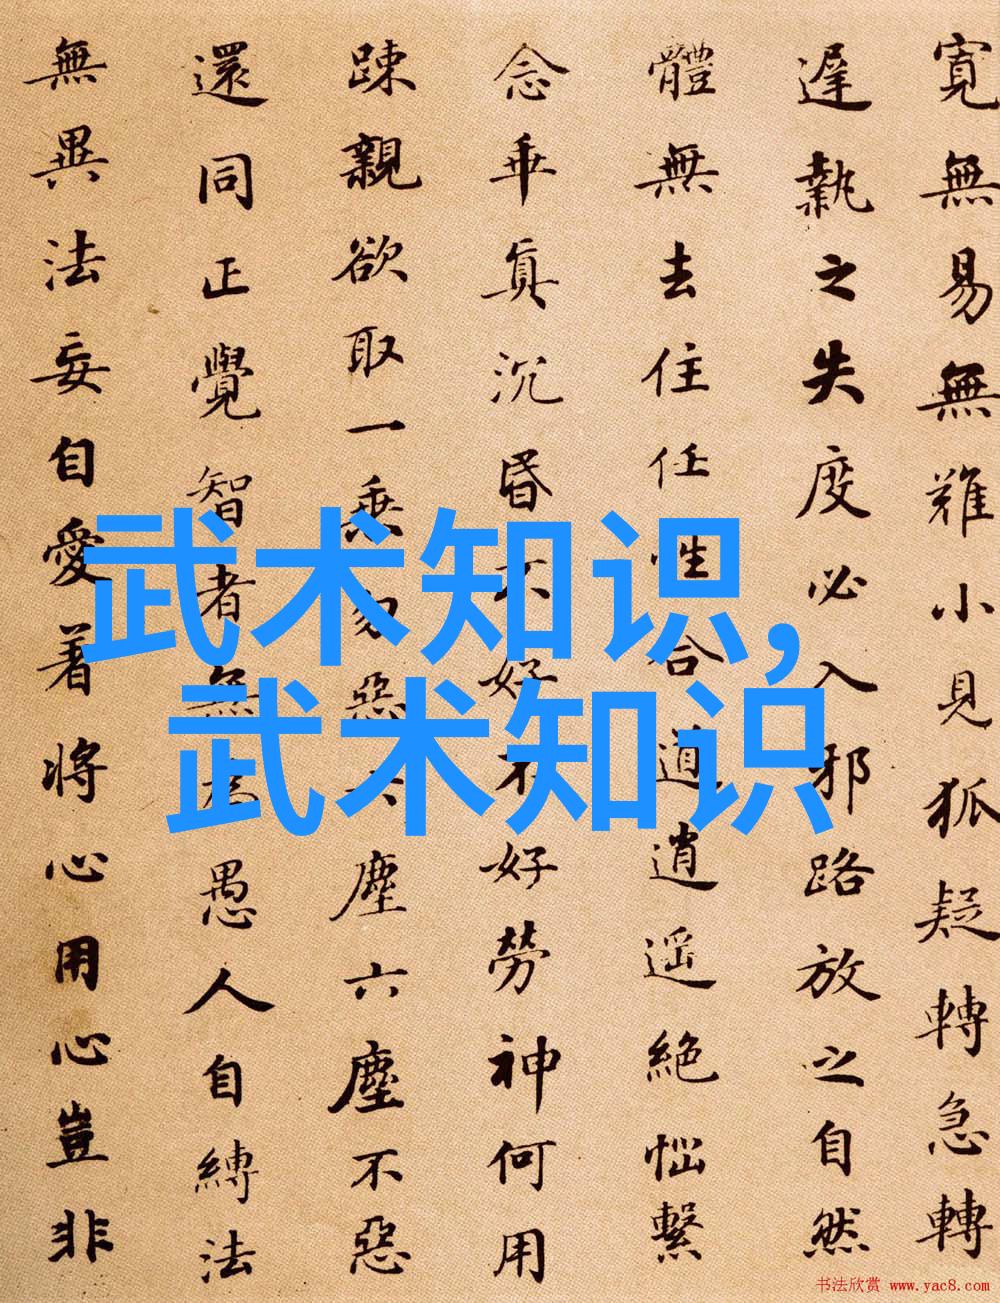 寬無易無難小見狐疑轉急轉
遲執之失度必入邪路放之自然
體無去住任性合道逍遥絶惱繫
念乖真沉昏不好不好勞神何用
踈親欲取一乘勿惡六塵六塵不惡
還同正覺智者無為愚人自縛法
無異法妄自愛著將心用心豈非
武术知识,
武术知识
书法欣赏 www.yac8.com